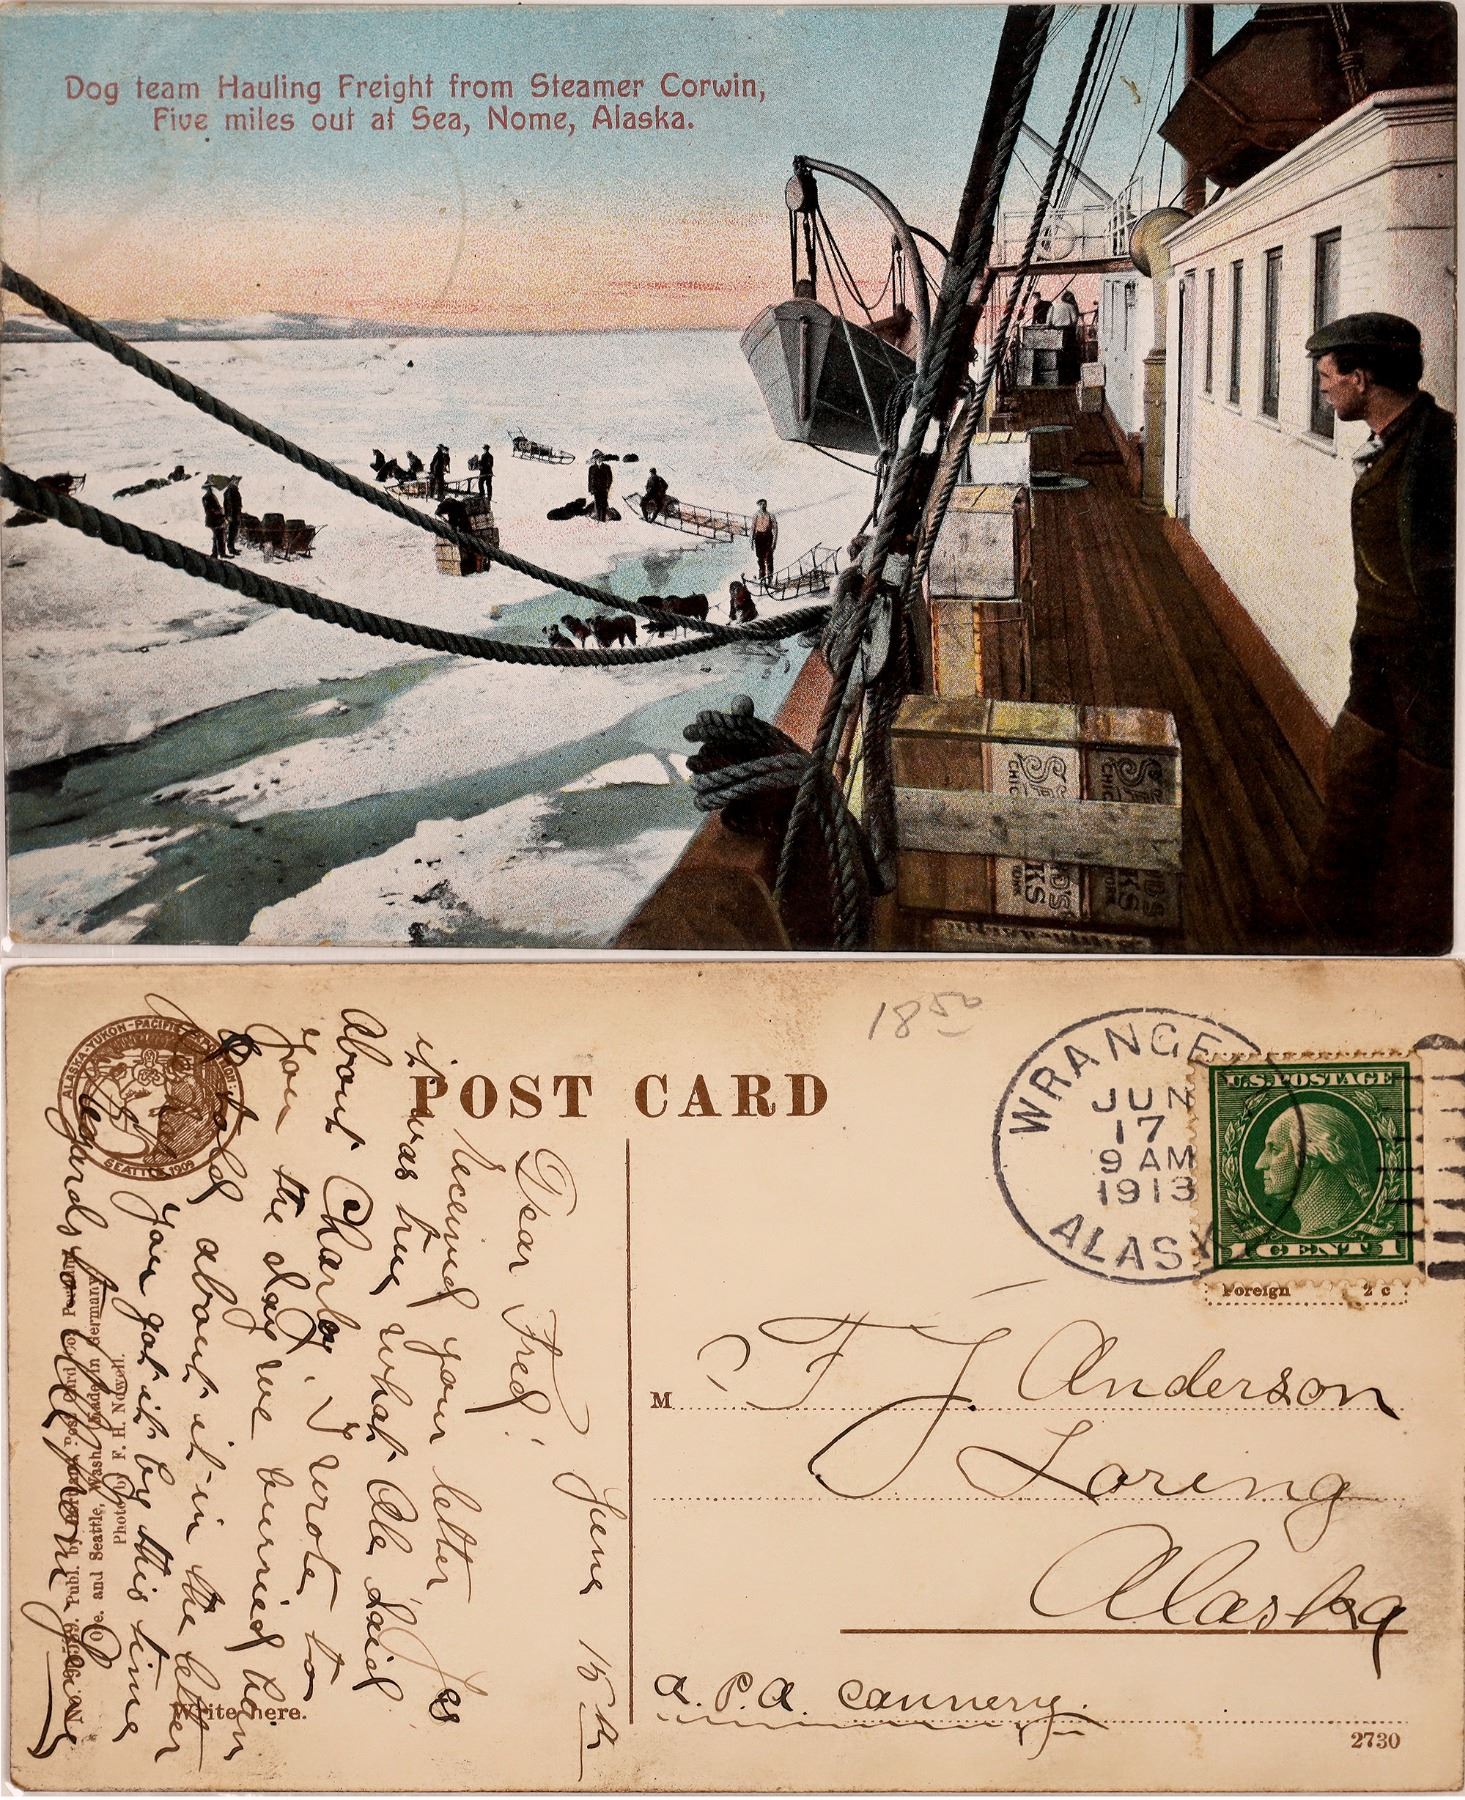 Dog team Hauling Freight from Steamer Corwin,
Five miles out at Sea, Nome, Alaska.
CHIC
CHIC
KS
D'S
RKS
YORK
1850
ALASKA-YUKON-PACIFIC EXPOSITION
SEATTLE 1909
POST CARD
WRANGE
JUN
17
9 AM
1913
ALASK
U.S. POSTAGE
1 CENT 1
Foreign 2 c
M
F J Anderson
Loring
Alaska
a. P. a Cannery.
2730
June 15th
Dear Fred!
Received your letter Yes
it was true what Ole Said
About Charley. I wrote to
you the day we burried him
& told about it in the letter
you got it by this time
Regards to all from
Publ. by Portland Post Card Co., Portland,
Ore. and Seattle, Wash. Made in Germany.
Photo by F. H. Nowell.
Write here.